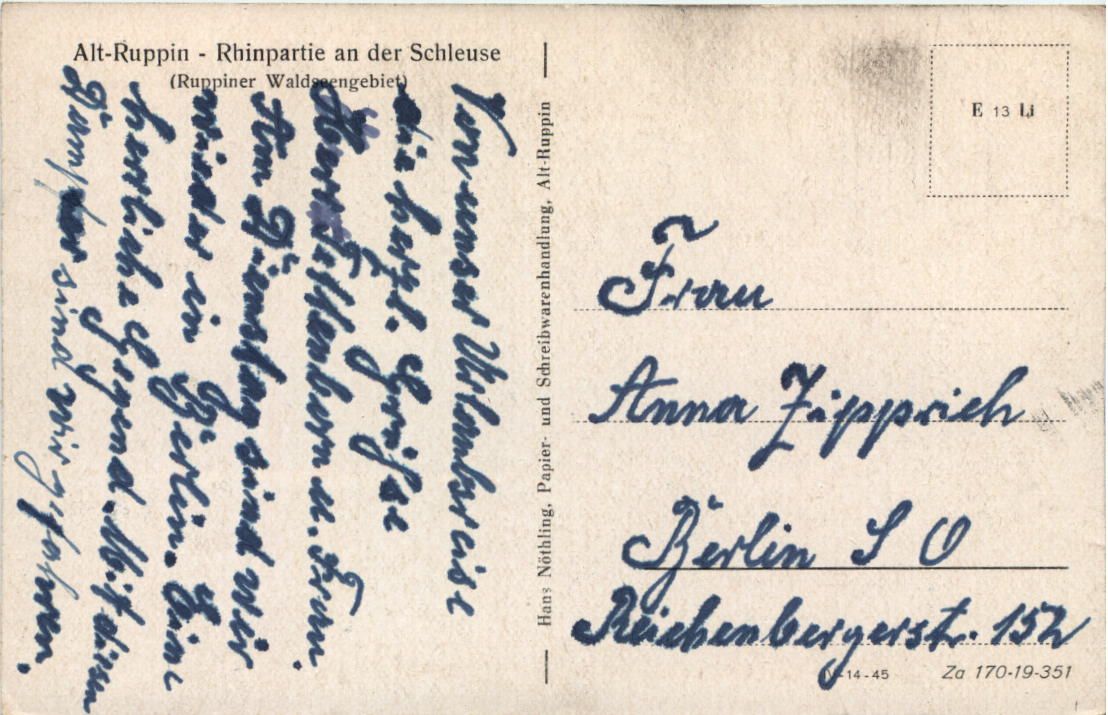 Alt-Ruppin - Rhinpartie an der Schleuse
(Ruppiner Waldseengebiet)
Von unser Urlaubreise
die herzl. Grüße
Herr u. Frau
Am Dienstag sind wir
wieder in Berlin. Eine
herrliche Gegend. Mit diesen
Dampfer sind wir gefahren.
Hans Nöthling, Papier- und Schreibwarenhandlung, Alt-Ruppin
E 13 Li
Frau
Anna Zipprich
Berlin S O
Reichenbergerstr. 152
-14-45
Za 170-19-351